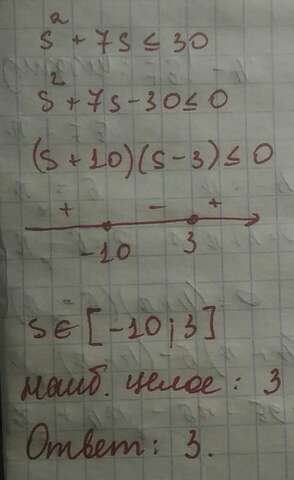 s² + 7s ≤ 30
s² + 7s - 30 ≤ 0
(s + 10)(s - 3) ≤ 0
+ - +
-10 3
s ∈ [-10; 3]
наиб. целое: 3
Ответ: 3.